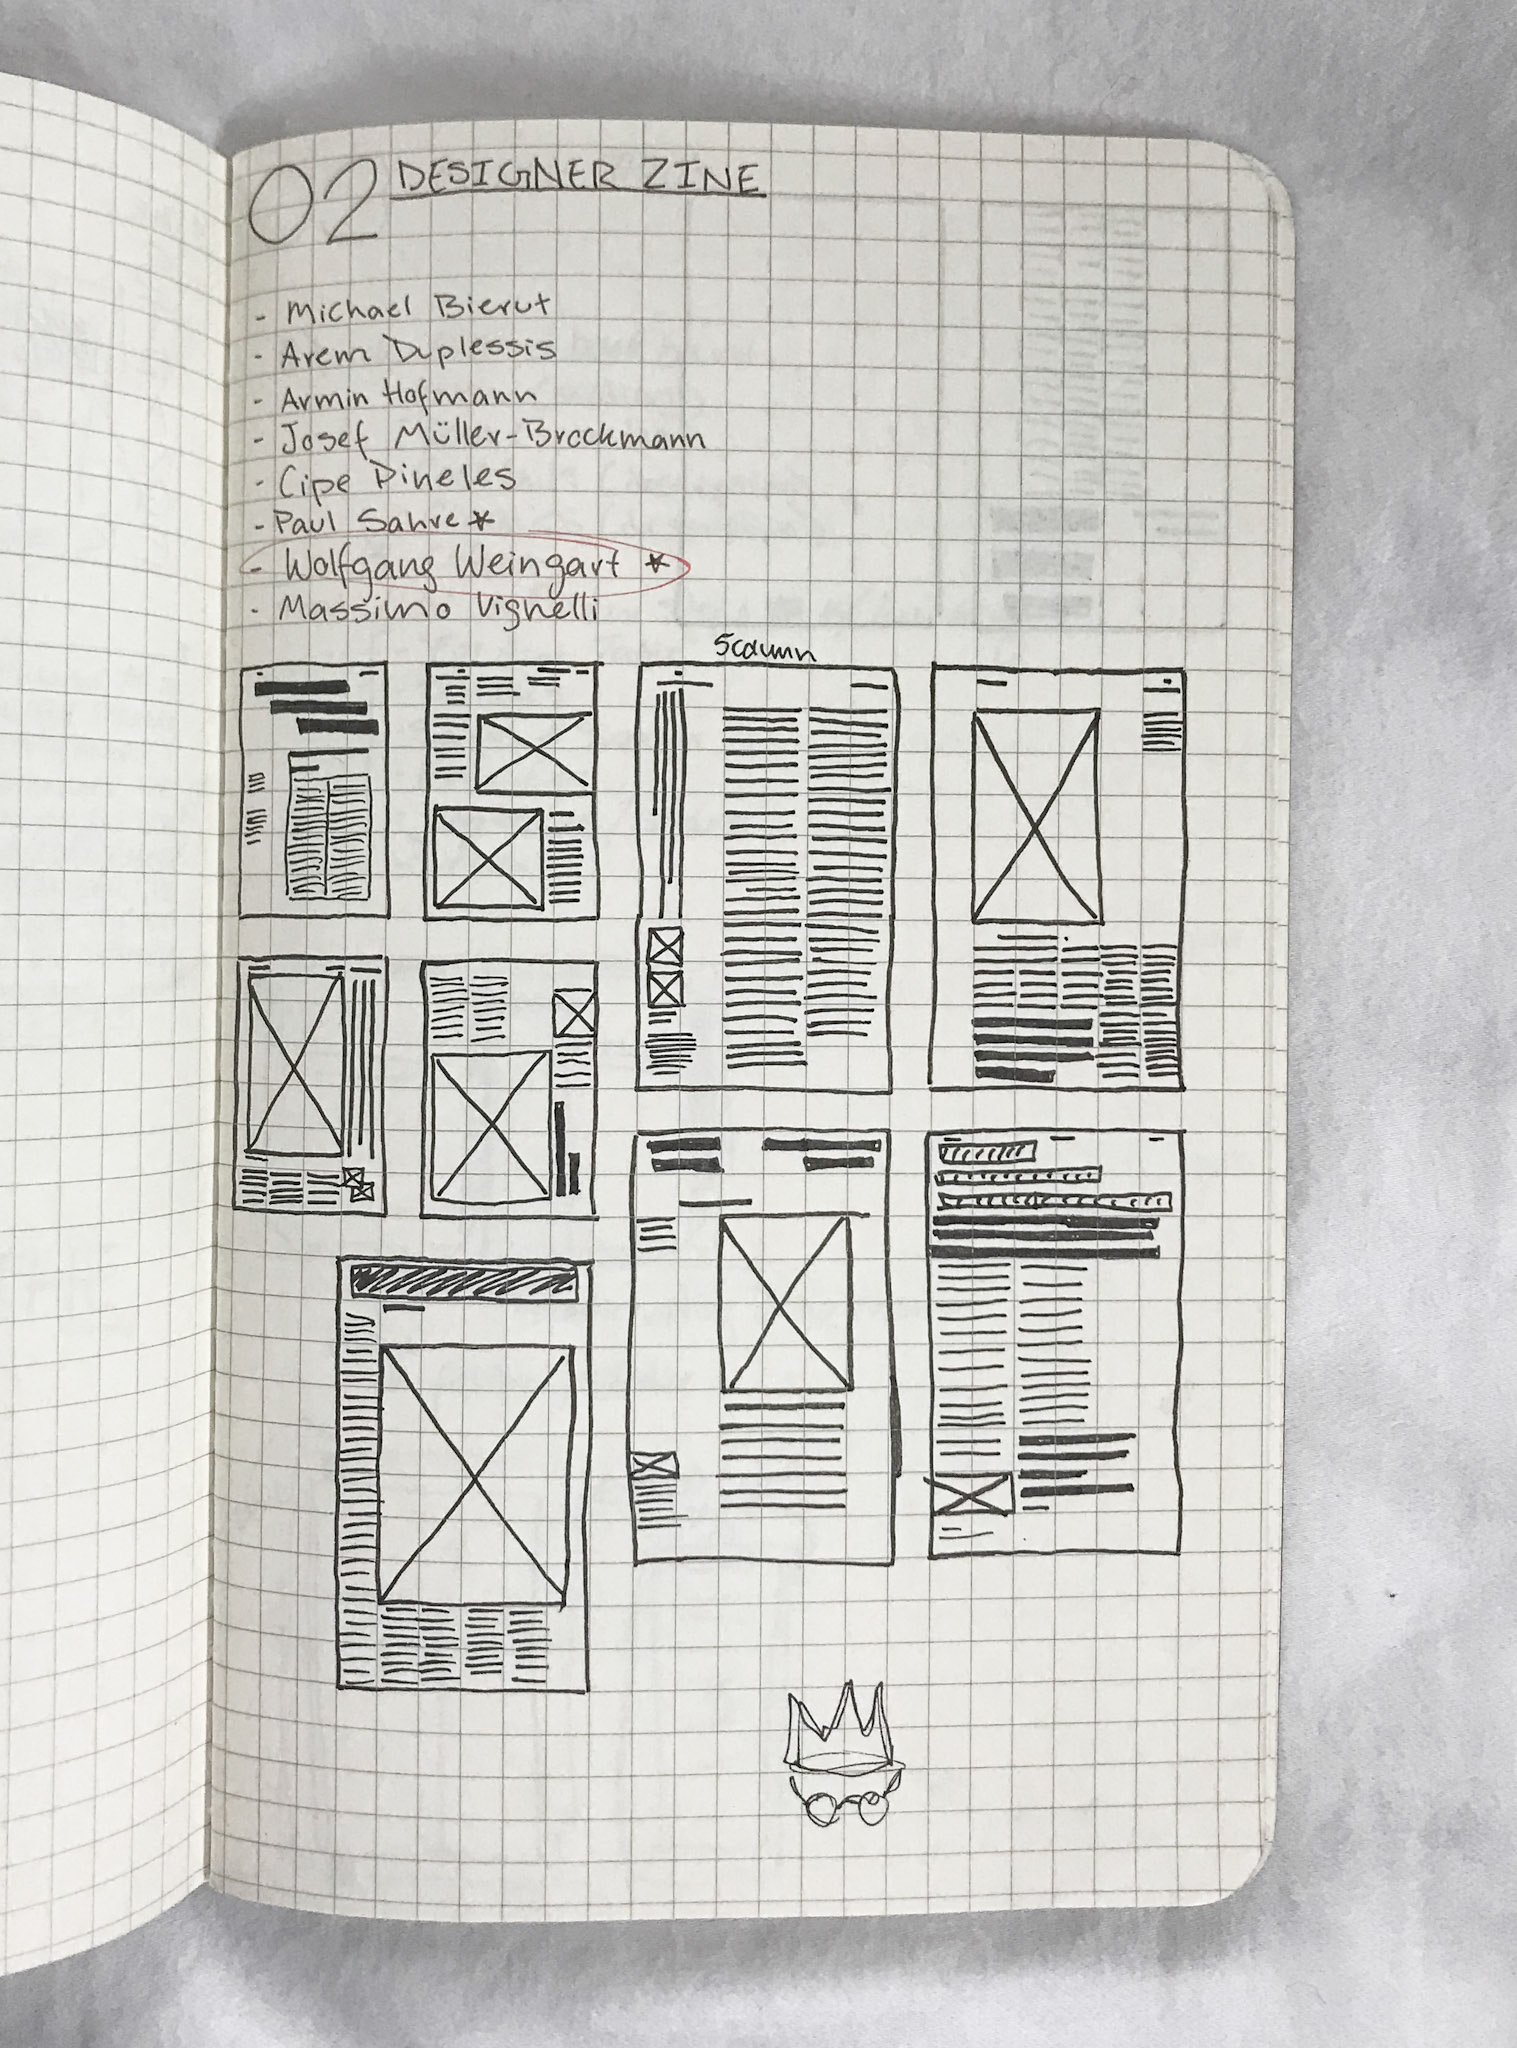 02 DESIGNER ZINE
- Michael Bierut
- Arem Duplessis
- Armin Hofmann
- Josef Müller-Brockmann
- Cipe Pineles
- Paul Sahre *
- Wolfgang Weingart *
- Massimo Vignelli
5 column